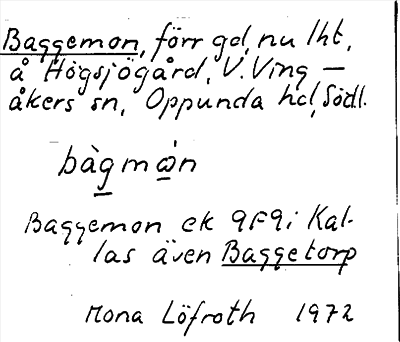 Baggemon, förr gd, nu lht,
å Högsjögård, V. Ving-
åkers sn, Oppunda hd, Södl.
bàgmòn
Baggemon ek 9F9i Kal-
las även Baggetorp
Mona Löfroth 1972